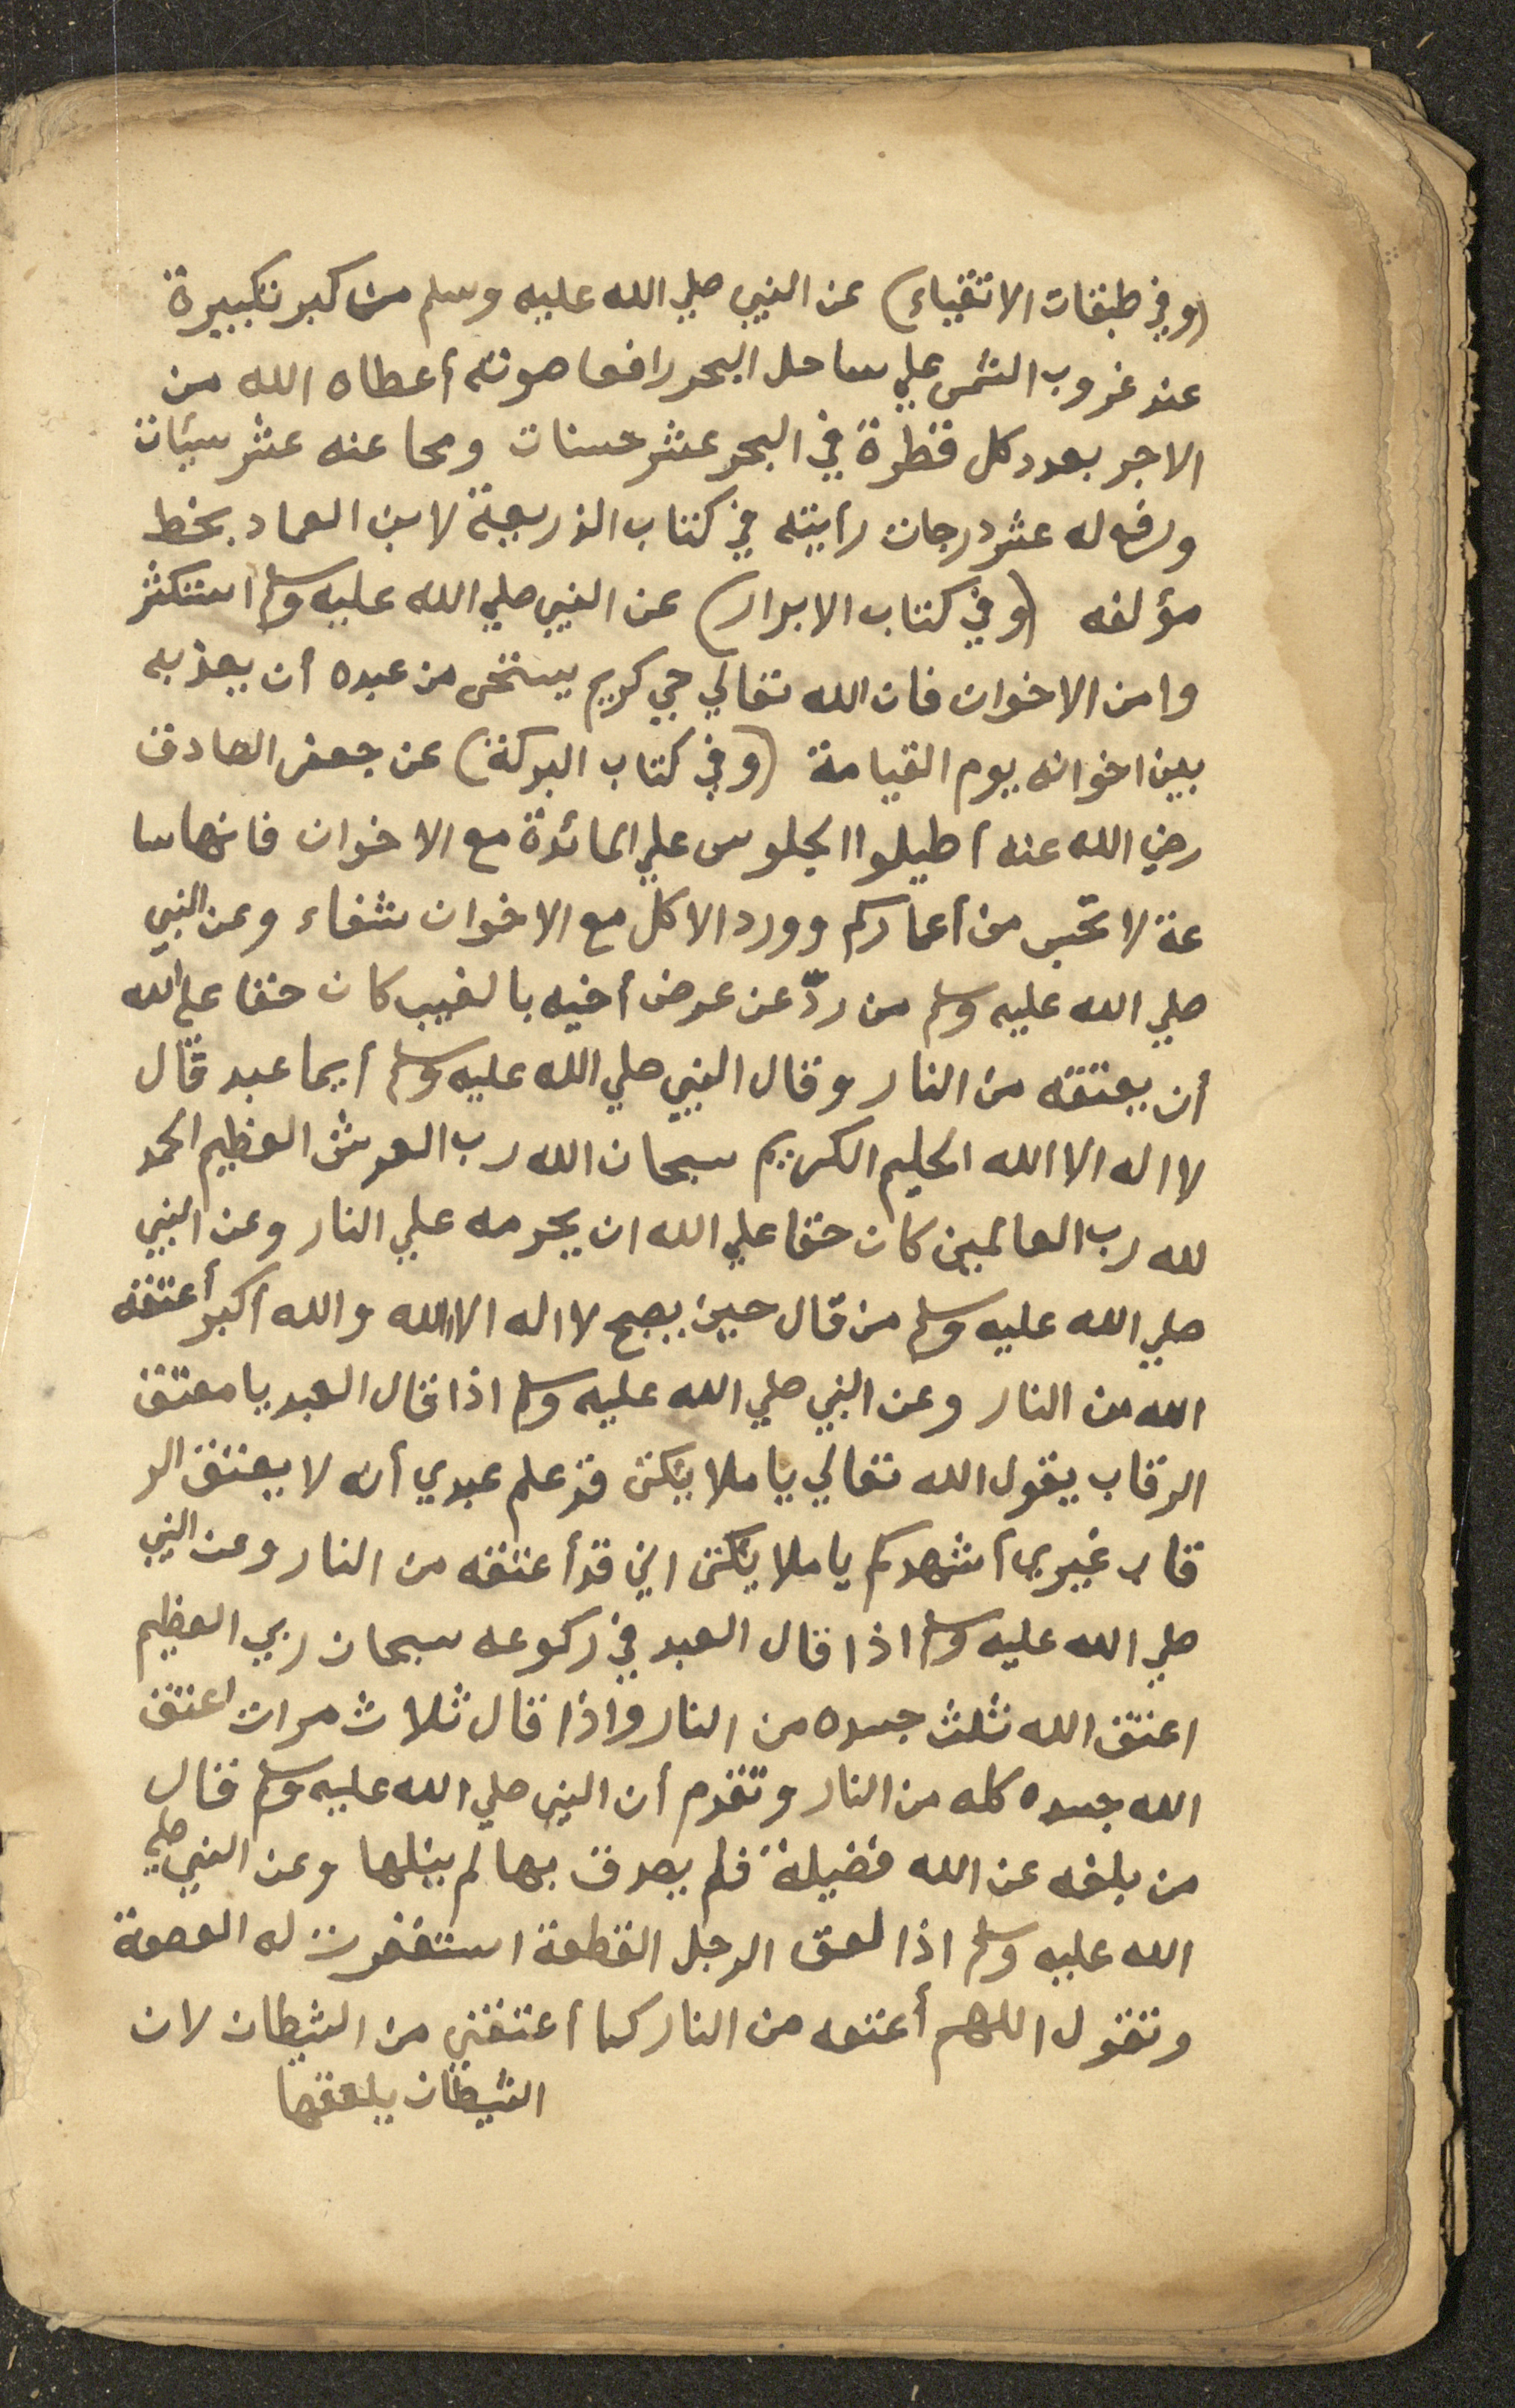 (وفي طبقات الاتقياء) عن النبي صلي الله عليه وسلم من كبر تكبيرة
عند غروب الشمس علي ساحل البحر رافعا صوته أعطاه الله من
الاجر بعدد كل قطرة في البحر عشر حسنات ومحا عنه عشر سيئات
ورفع له عشر درجات رأيته في كتاب الذريعة لابن العماد بخط
مؤلفه (وفي كتاب الابرار) عن النبي صلي الله عليه وسلم استكثر
وا من الاخوان فان الله تعالي حي كريم يستحى من عبده أن يعذبه
بين اخوانه يوم القيامة (وفي كتاب البركة) عن جعفر الصادق
رضي الله عنه أطيلوا الجلوس علي المائدة مع الاخوان فانها سا
عة لا تحسب من أعماركم وورد الاكل مع الاخوان شفاء وعن النبي
صلي الله عليه وسلم من ردّ عن عرض أخيه بالغيب كان حقا علي الله
أن يعتقه من النار وقال النبي صلي الله عليه وسلم أيما عبد قال
لا اله الا الله الحليم الكريم سبحان الله رب العرش العظيم الحمد
لله رب العالمين كان حقا علي الله ان يحرمه علي النار وعن النبي
صلي الله عليه وسلم من قال حين يصبح لا اله الا الله والله أكبر أعتقه
الله من النار وعن النبي صلي الله عليه وسلم اذا قال العبد يا معتق
الرقاب يقول الله تعالي يا ملايكتى قد علم عبدي أنه لا يعتق الر
قاب غيري أشهدكم يا ملايكتى اني قد أعتقه من النار وعن النبي
صلي الله عليه وسلم اذا قال العبد في ركوعه سبحان ربي العظيم
اعتق الله ثلث جسده من النار واذا قال ثلاث مرات اعتق
الله جسده كله من النار وتقدم أن النبي صلي الله عليه وسلم قال
من بلغه عن الله فضيلة فلم يصدق بها لم ينلها وعن النبي صلي
الله عليه وسلم اذا لعق الرجل القطعة استغفرت له القصعة
وتقول اللهم أعتقه من النار كما أعتقني من الشيطان لان
الشيطان يلعقها